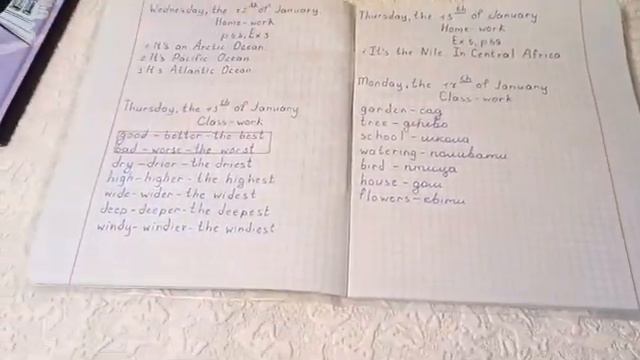 Wednesday, the 12th of January.
Home-work
p 68, Ex 3
1 It's an Arctic Ocean.
2 It's Pacific Ocean.
3 It's Atlantic Ocean.
Thursday, the 13th of January
Class-work
good - better - the best
bad - worse - the worst
dry - drier - the driest
high - higher - the highest
wide - wider - the widest
deep - deeper - the deepest
windy - windier - the windiest
Thursday, the 13th of January
Home-work
Ex 5, p 68
1 It's the Nile. In Central Africa
Monday, the 17th of January
Class-work
garden - сад
tree - дерево
school - школа
watering - поливати
bird - птица
house - дом
flowers - квіти